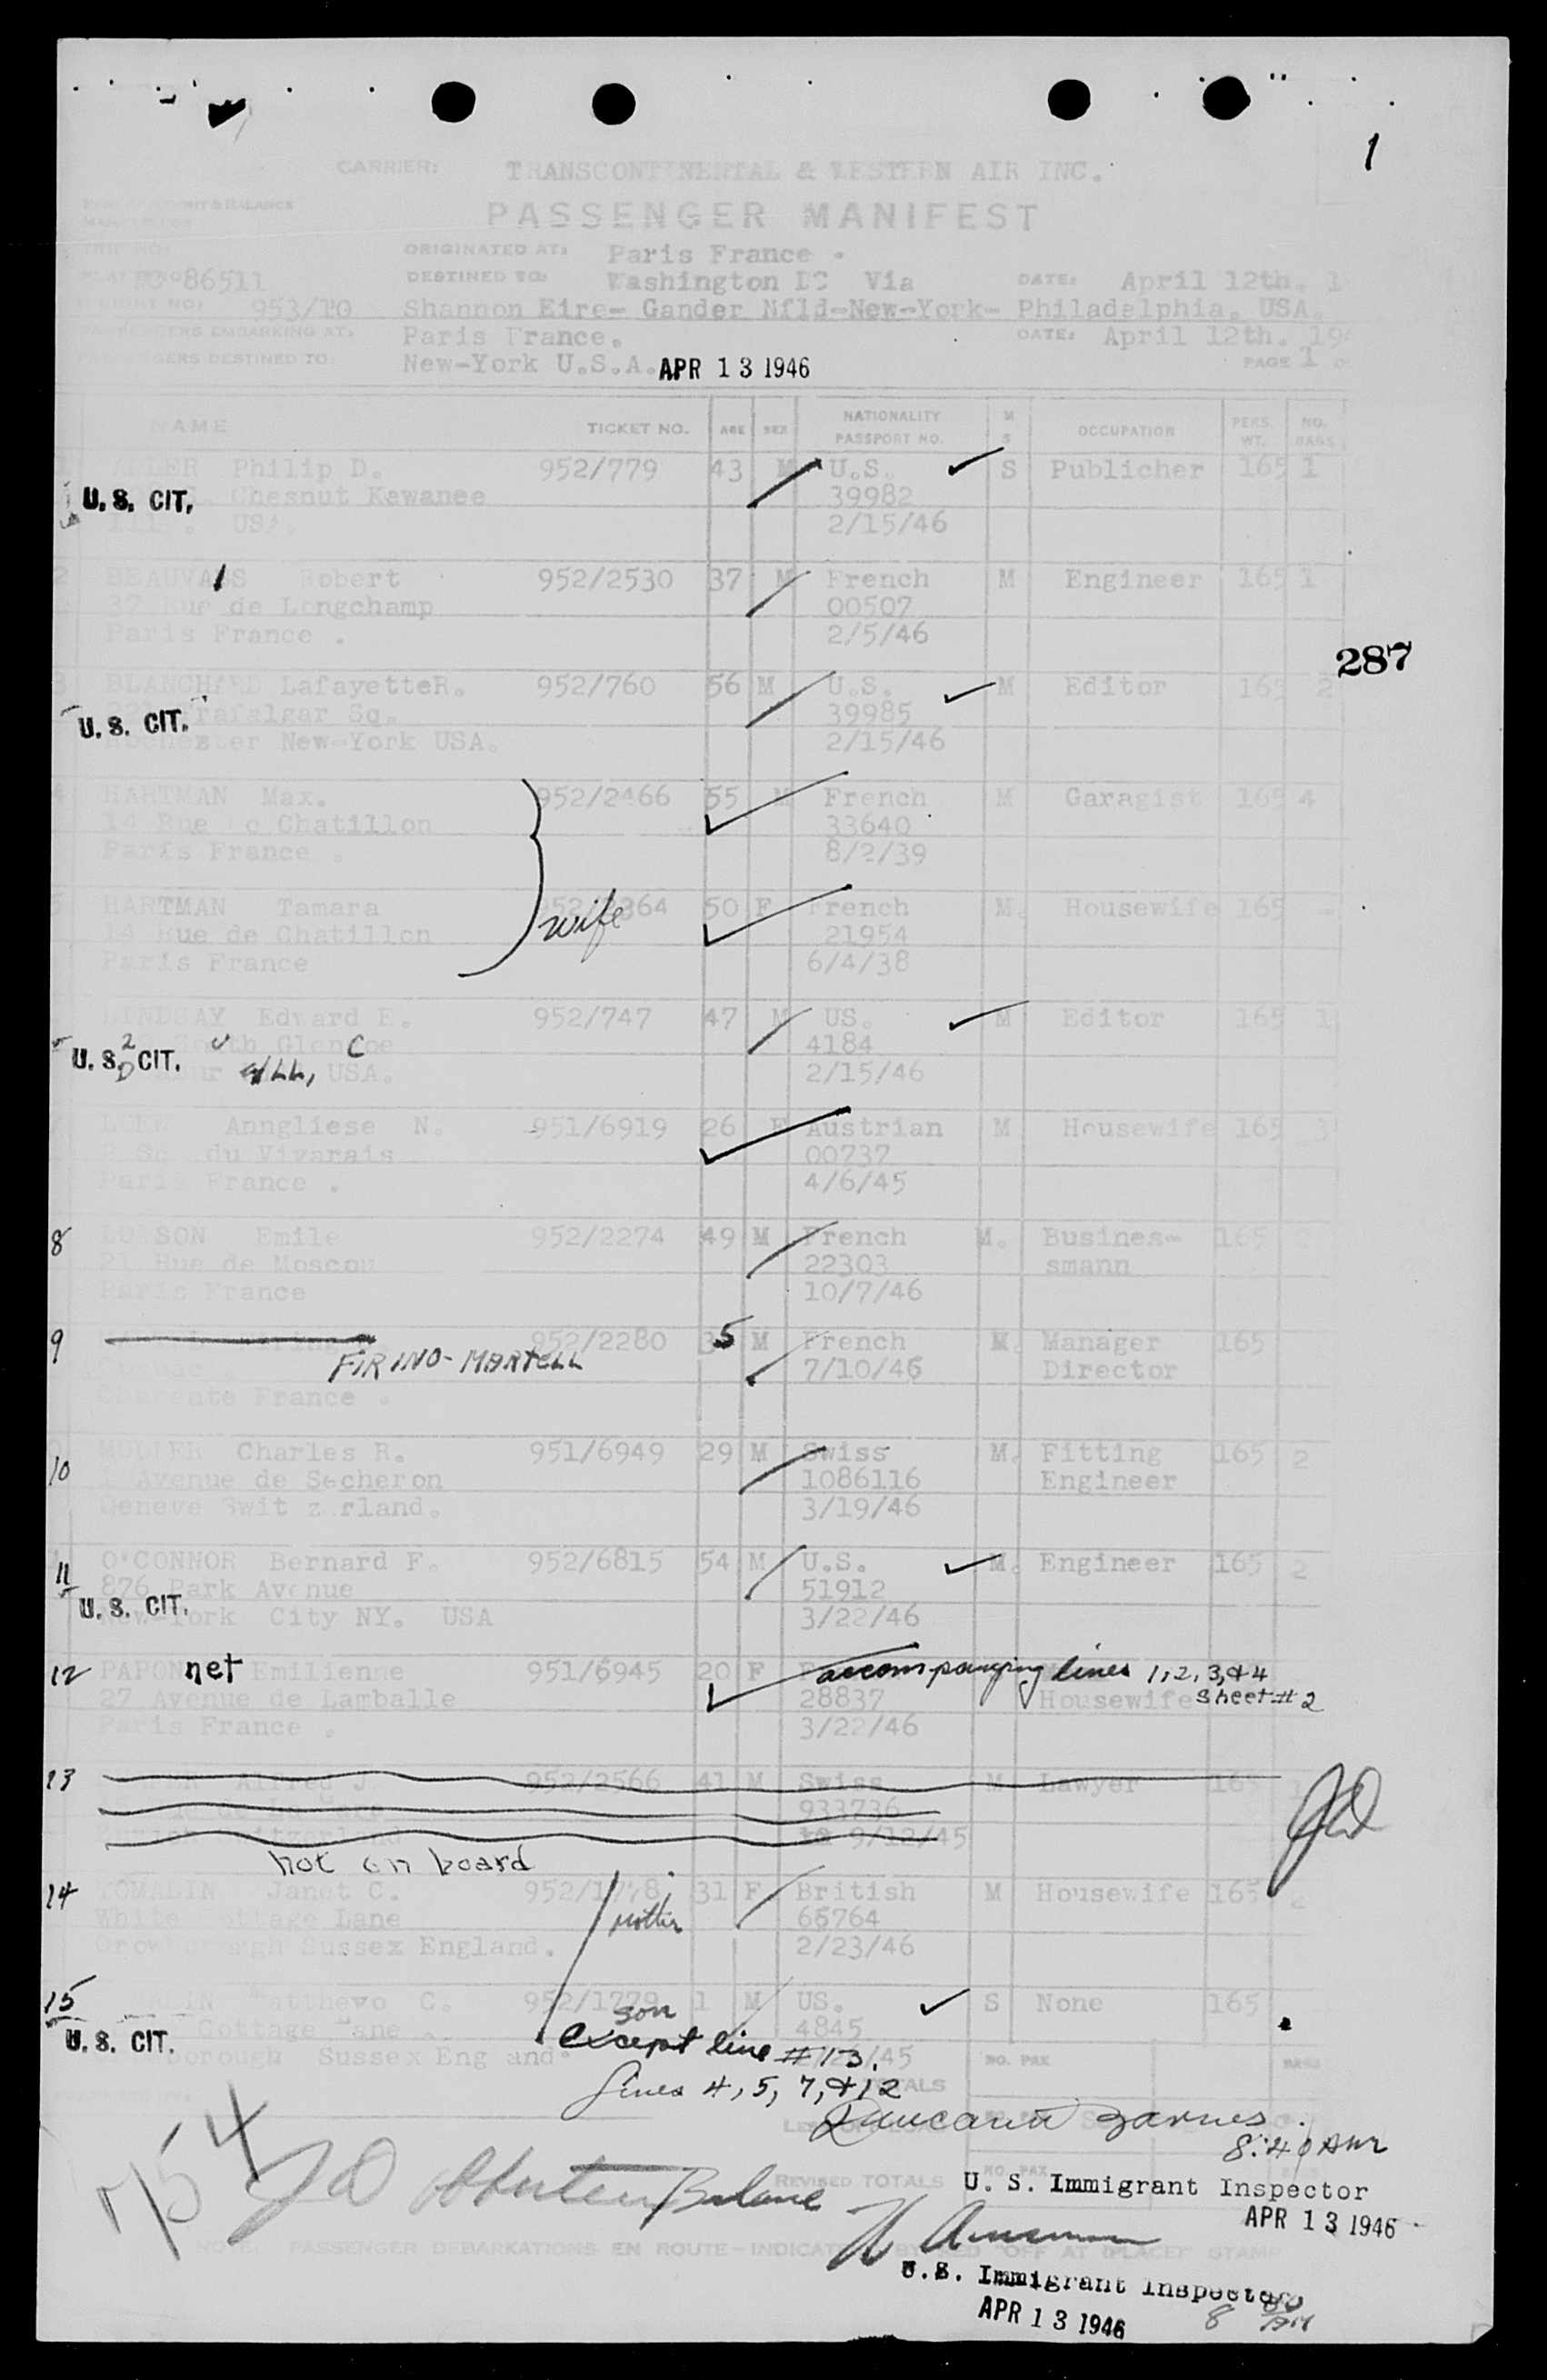 1
CARRIER: TRANSCONTINENTAL & WESTERN AIR INC.
PASSENGER MANIFEST
ORIGINATED AT: Paris France .
86511 DESTINED TO: Washington DC Via DATE: April 12th.
953/10 Shannon Eire- Gander Nfld-New-York- Philadelphia. USA.
PASSENGERS EMBARKING AT: Paris France. DATE: April 12th.
PASSENGERS DESTINED TO New-York U.S.A. APR 13 1946 PAGE 1
NAME TICKET NO. AGE SEX NATIONALITY PASSPORT NO. M S OCCUPATION PERS. WT. NO. BAGS
Philip D. 952/779 43 M U.S. S Publicher 165 1
U. S. CIT. Chesnut Kewanee 39982
USA. 2/15/46
2 BEAUVAIS Robert 952/2530 37 M French M Engineer 165 1
37 Rue de Longchamp 00507
Paris France . 2/5/46
287
3 BLANCHARD LafayetteR. 952/760 56 M U.S. M Editor 165 2
U. S. CIT. Trafalgar Sq. 39985
Rochester New-York USA. 2/15/46
4 HARTMAN Max. 952/2466 55 M French M Garagist 165 4
14 Rue de Chatillon 33640
Paris France . 8/2/39
5 HARTMAN Tamara 50 F French M. Housewife 165
wife
14 Rue de Chatillon 21954
Paris France 6/4/38
LINDSAY Edward E. 952/747 47 M US. M Editor 165 1
U. S. CIT. 4184
ILL, USA. 2/15/46
Anngliese N. 951/6919 26 F Austrian M Housewife 165 3
du Vivarais 00737
Paris France . 4/6/45
8 Emile 952/2274 49 M French M. Busines-
165
21 Rue de Moscou 22303 smann
Paris France 10/7/46
9 952/2280 5 M French M. Manager 165
FIRINO-MARTELL 7/10/45 Director
Charente France .
10 Charles R. 951/6949 29 M Swiss M. Fitting 165 2
Avenue de Secheron 1086116 Engineer
Geneve 3/19/46
11 O'CONNOR Bernard F. 952/6815 54 M U.S. M. Engineer 165 2
876 Park Avenue 51912
U. S. CIT. New-York City NY. USA 3/22/46
12 PAPONnet Emilienne 951/6945 20 F accompanying lines 1, 2, 3, & 4
27 Avenue de Lamballe 28837 Housewife sheet # 2
Paris France . 3/22/46
13 Alfred J. 952/2566 41 M Swiss M Lawyer 165
933736
9/12/45
not on board
JD
14 TOMALIN Janet C. 31 F British M Housewife 165 2
Lane mother 66764
Sussex England. 2/23/46
15 952/1779 1 M US. S None 165
son
Cottage Lane 4845
U. S. CIT. Sussex
Except line # 13.
NO. PAX
Lines 4, 5, 7, & 12
TOTALS
8:40 AM
REVISED TOTALS NO. PAX
U. S. Immigrant Inspector
APR 13 1946
PASSENGER DEBARKATIONS EN ROUTE-INDICATE BY RED "OFF AT (PLACE)" STAMP
U.S. Immigrant Inspector
APR 13 1946